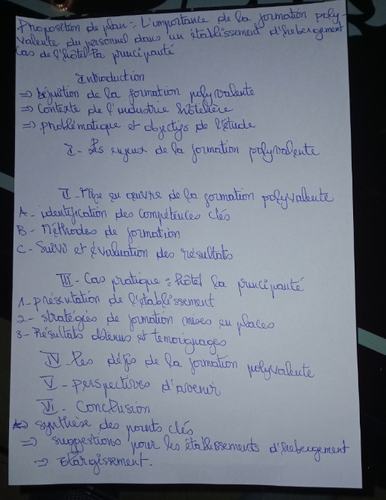 Proposition de plan : L'importance de la formation poly-
valente du personnel dans un établissement d'hébergement
Cas de l'hôtel la principauté
Introduction
⇒ Définition de la formation polyvalente
⇒ Contexte de l'industrie hôtelière
⇒ problématique et objectifs de l'étude
I - Les enjeux de la formation polyvalente
II - Mise en œuvre de la formation polyvalente
A - identification des compétences clés
B - Méthodes de formation
C - Suivi et évaluation des résultats
III - Cas pratique : hôtel la principauté
1 - présentation de l'établissement
2 - stratégies de formation mises en places
3 - Résultats obtenus et temoignages
IV - Les défis de la formation polyvalente
V - perspectives d'avenir
VI - Conclusion
⇒ synthèse des points clés
⇒ suggestions pour les établissements d'hébergement
⇒ Elargissement.